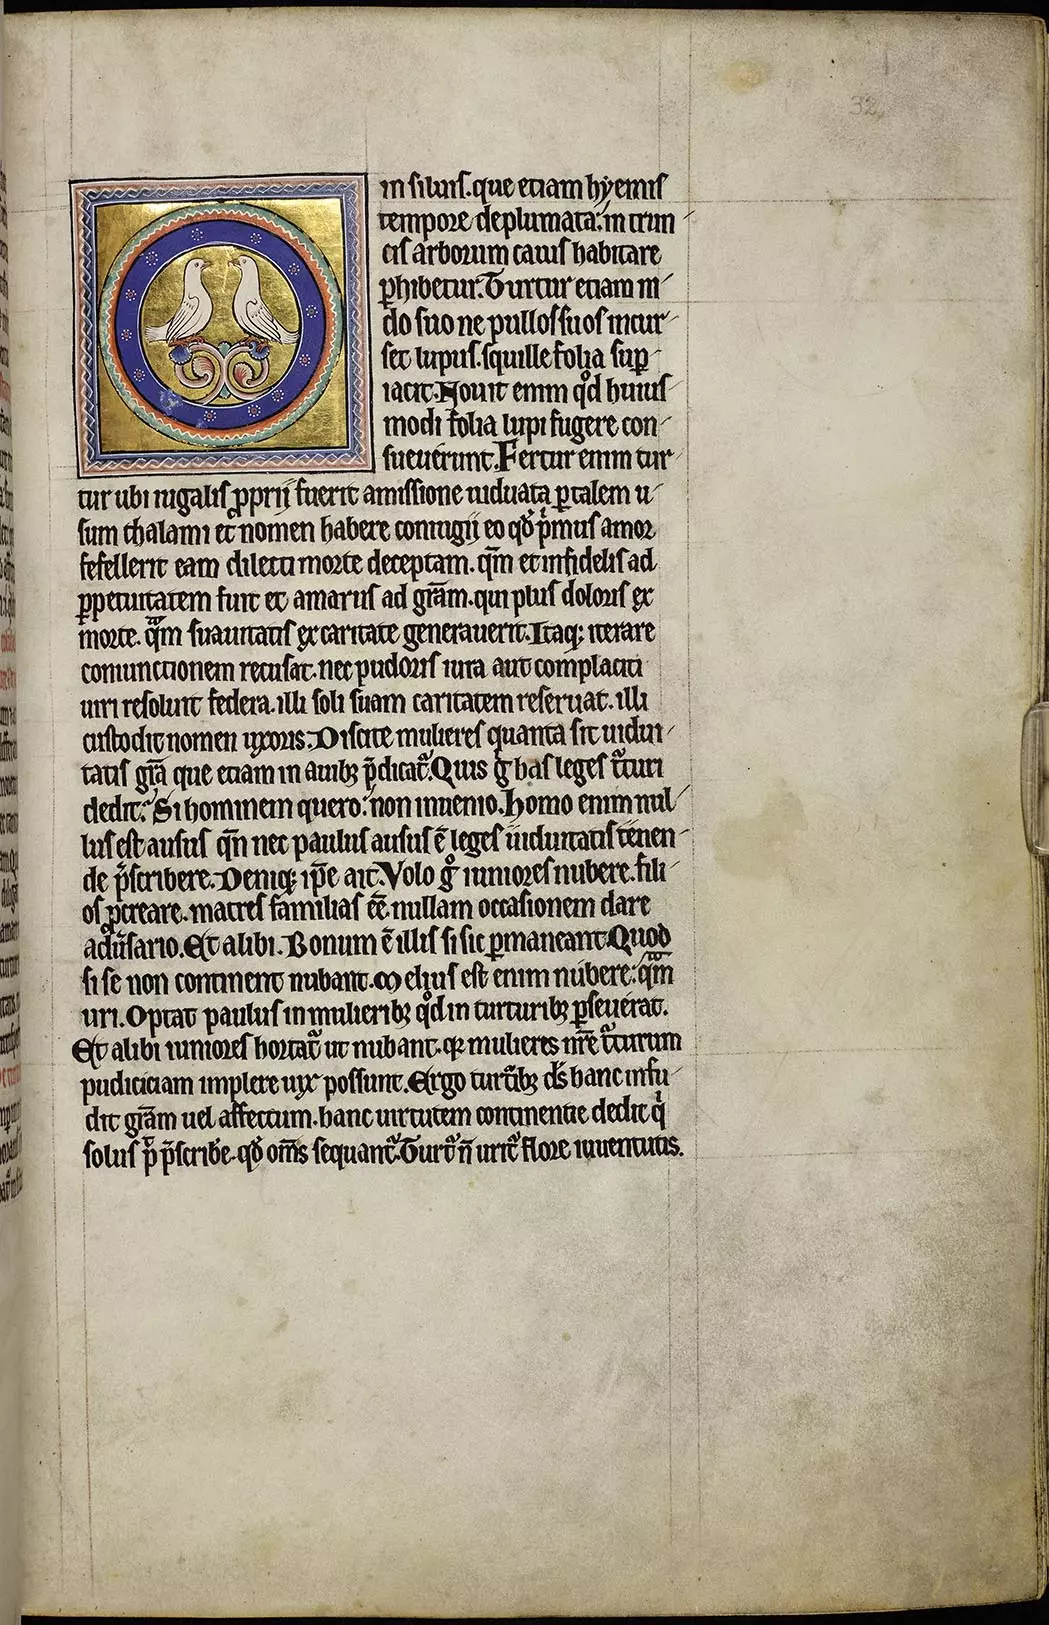 32
in siluis. que etiam hyemis
tempore deplumata: in trun
cis arborum cauis habitare
phibetur. Turtur etiam ni
do suo ne pullos suos incur
set lupus. squille folia sup
iacit. Nouit enim qd huius
modi folia lupi fugere con
sueuerunt. Fertur enim tur
tur ubi iugalis pprij fuerit amissione uiduata ptalem u
sum thalami et nomen habere coniugij eo qd pmus amor
fefellerit eam dilecti morte deceptam. qm et infidelis ad
ppetuitatem fuit et amarus ad gram. qui plus doloris ex
morte. qm suauitatis ex caritate generauerit. Itaq; iterare
coniunctionem recusat. nec pudoris iura aut complaciti
uiri resoluit federa. illi soli suam caritatem reseruat. illi
custodit nomen uxoris. Discite mulieres quanta sit uidui
tatis gra que etiam in auib; pdicat. Quis g has leges tturi
dedit. Si hominem quero: non inuenio. Homo enim nul
lus est ausus qn nec paulus ausus e leges uiduitatis tenen
de pscribere. Deniq; ipe ait. Volo g iuniores nubere. fili
os pcreare. matres familias ee. nullam occasionem dare
aduersario. Et alibi. Bonum e illis si sic pmaneant. Quod
si se non continent nubant. Melius est enim nubere: qm
uri. Optat paulus in mulierib; qd in turturib; pseuerat.
Et alibi iuniores hortat ut nubant. q; mulieres nre tturum
pudiciciam implere uix possunt. Ergo turtib; ds hanc infu
dit gram uel affectum. hanc uirtutem continentie dedit q
solus p pscribe. qd oms sequant. Turt n urit flore iuuentutis.